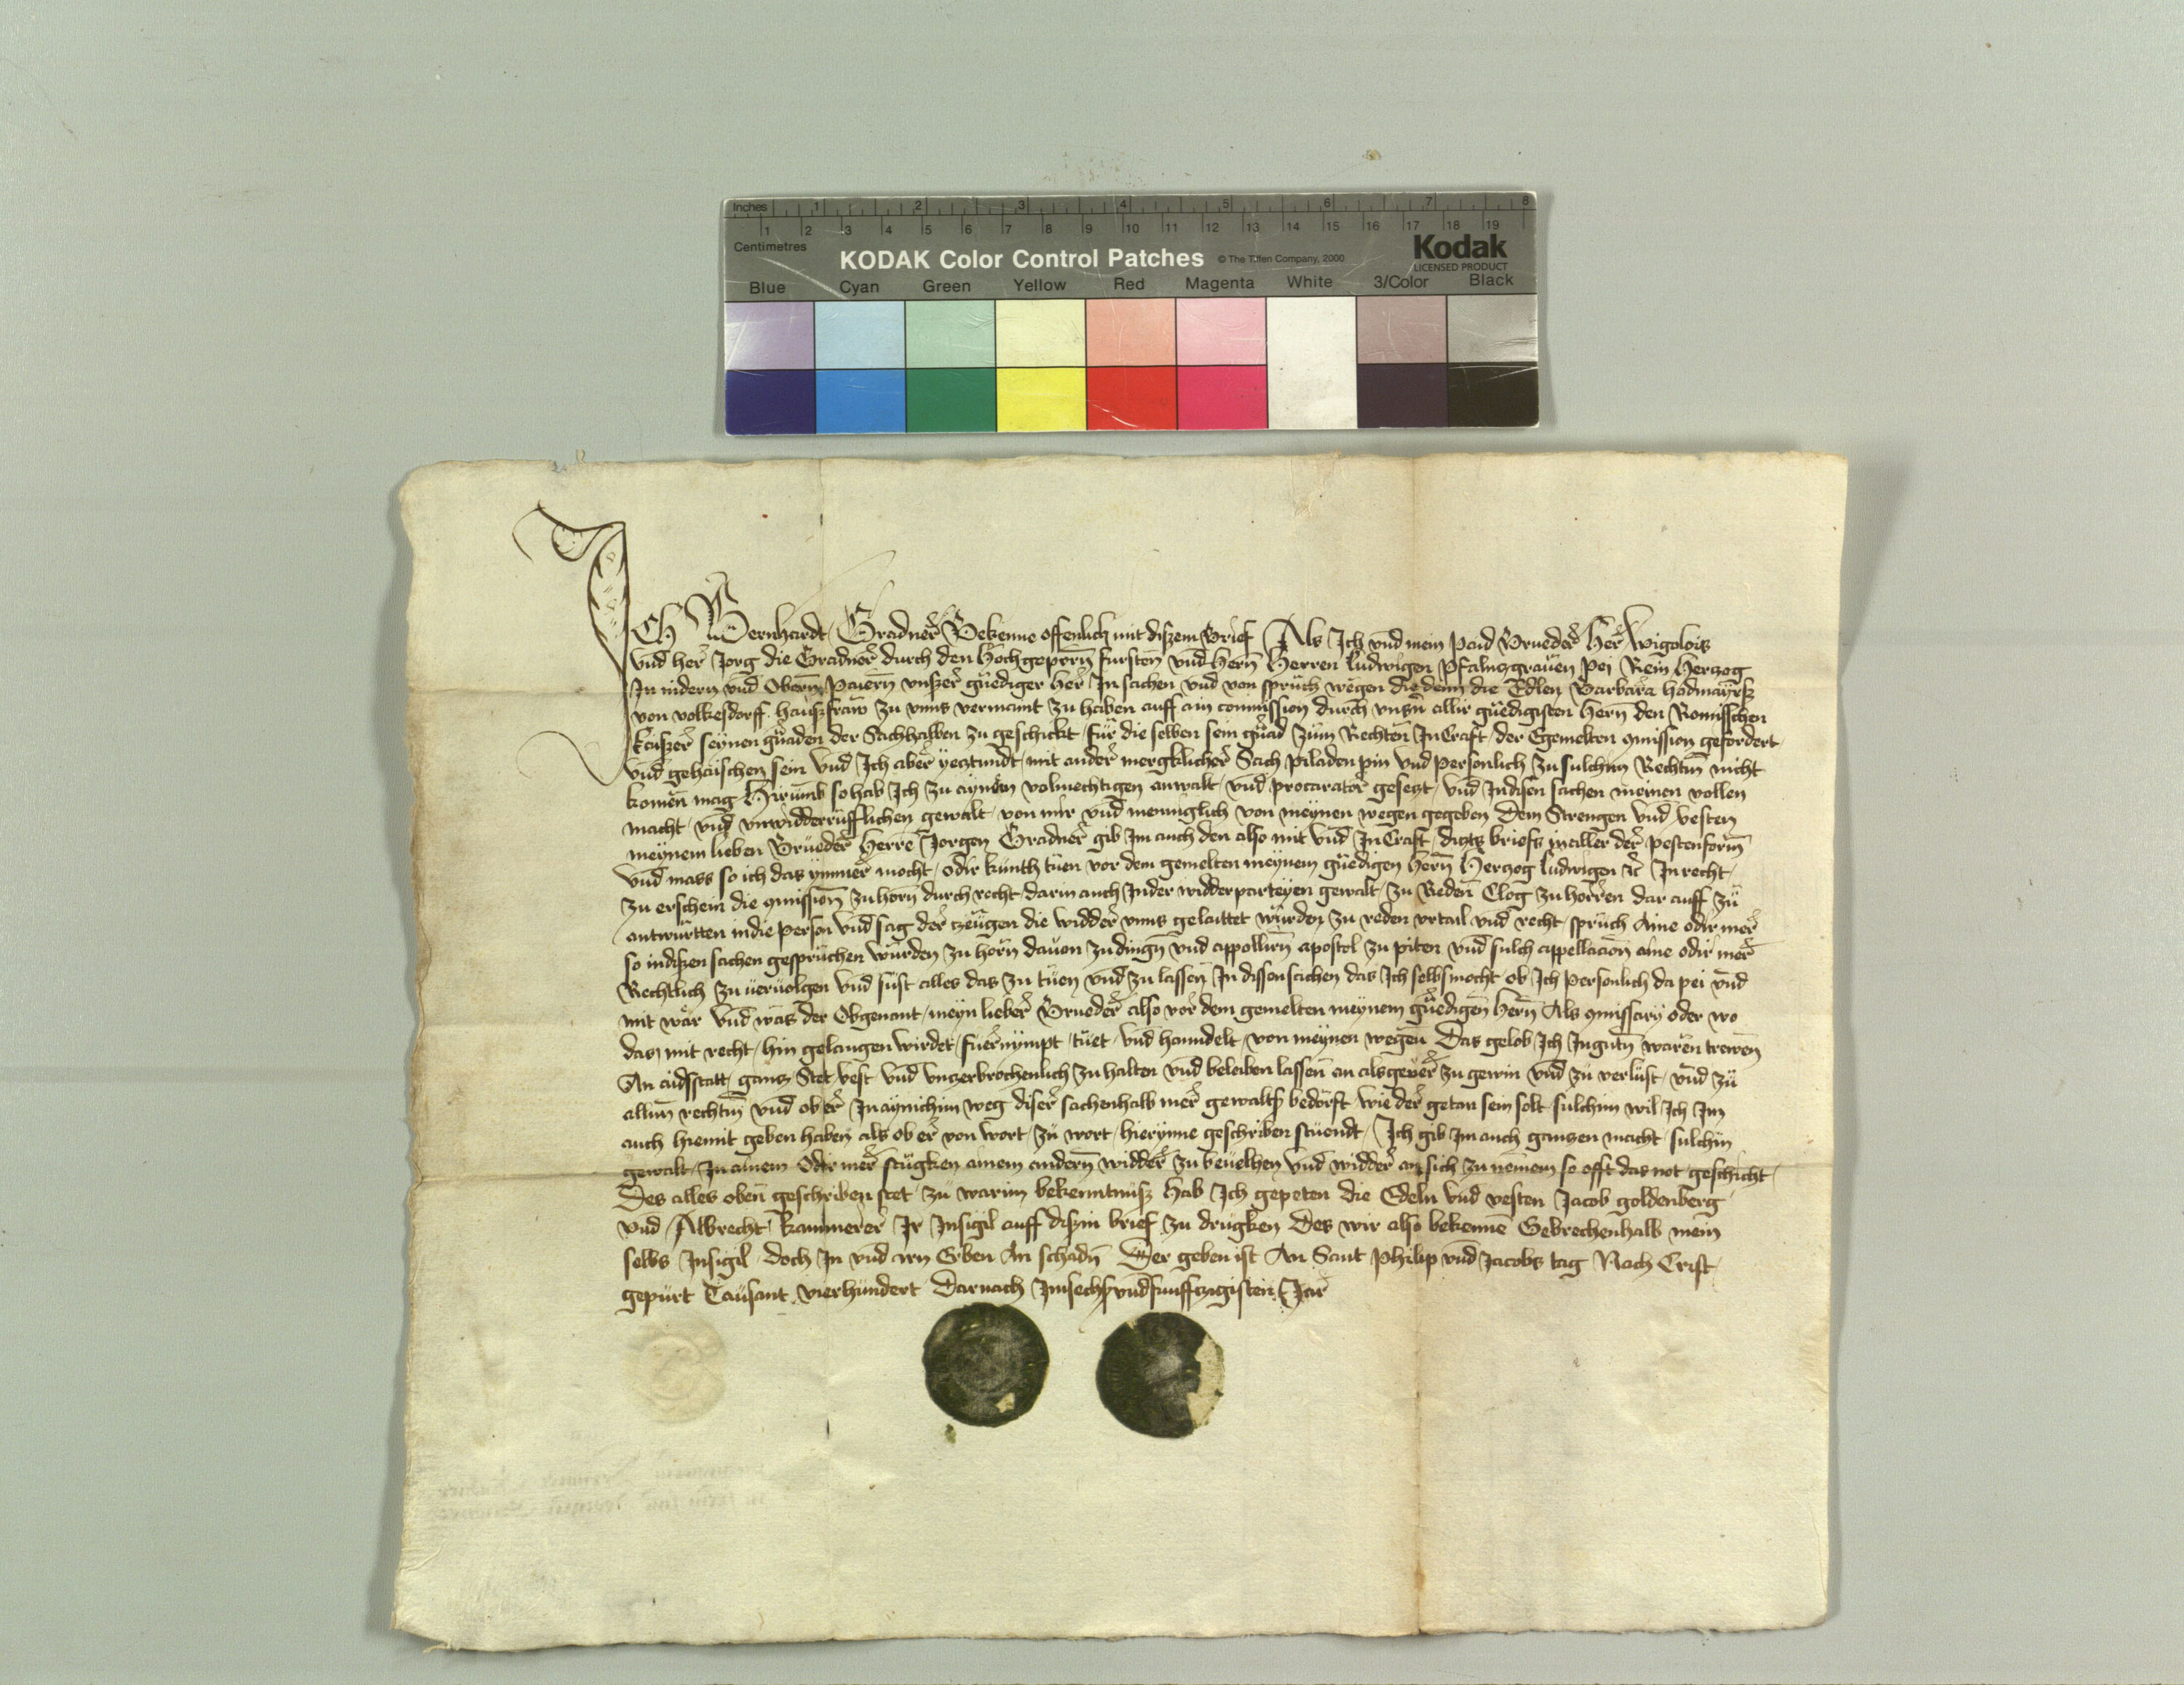 Inches 1 2 3 4 5 6 7 8
1 2 3 4 5 6 7 8 9 10 11 12 13 14 15 16 17 18 19
Centimetres
KODAK Color Control Patches © The Tiffen Company, 2000 Kodak
LICENSED PRODUCT
Blue Cyan Green Yellow Red Magenta White 3/Color Black
ICh Bernhardt Gradner Bekenne offenlich mit diszem Brief Als Ich vnd mein paid Brueder Her Wigolois
vnd her Jorg die Gradner durch den Hochgeporn fursten vnd Hern Herren ludwigen Pfalnczgrauen pei Rein Herczog
In nidern vnd Obern Paiern vnszer gnediger her In sachen vnd von spruch wegen die denn die Edlen Barbara hadmayrsz
von volkesdorff hauszfraw zu vnns vermaint zu haben auff ain commission durch vnsn allir gnedigisten hern den Romisschen
keiszer seynen gnaden der Sachhalben zu geschickt für die selben sein gnad züm Rechten In Craft der Egemelten 9mission gefordert
vnd gehaischen sein vnd Ich aber yecztundt mit ander mergklicher Sach piladen pin vnd personlich zu sulchim Rechtin nicht
komen mag Hirumb so hab Ich zu aynem volmechtigen anwalt vnd procarator geseczt vnd Indisen sachen meinen vollen
macht vnd vnwidderrüfflichen gewalt von mir vnd menniglich von meynen wegen gegeben Dem Strengen vnd vesten
meynem lieben Brüder Herre Jorgen Gradner gib Im auch den also mit vnd In Craft diczs briefs in aller der pestenform
vnd mass so ich das ymmer mocht odir kunth tüen vor dem gemelten meynem gnedigen Hern Herczog ludwigen etc In recht
zu erschein die 9mission zu horn durch recht darin auch Inder widderparteyen gewalt zu Reden Clog zu horren dar auff zü
antwürtten in die person vnd sag der czeügen die widder vnns gelauttet würden zu reden vrtail vnd recht sprüch Aine odir mer
so indiszen sachen gesprüchen würden zu horn dauon zu dingn vnd appollirn apostol zu piten vnd sulch appellacion aine odir mer
Rechtlich zu üeruolgen vnd süst alles das zu tüen vnd zu lassen In dissen sachen das Ich selbs mocht ob Ich personlich da pei vnd
mit wär vnd was der Obgenant meyn lieber Brueder also vor dem gemelten meynem gnedigen Hern Als 9missary oder wo
das mit recht hin gelangen wirdet fürnympt tüet vnd hanndelt von meynen wegen Das gelob Ich Ingutn waren trewen
An aidsstatt gancz Stet vest vnd vnczerbrochenlich zu halten vnd beleiben lassen an als geuer zu gewin vnd zu verlust vnd zü
allim rechtin vnd ob er In aynichim weg diser sachenhalb mer gewalts bedörft wie der getan sein solt sulchim wil Ich Im
auch hiemit geben haben als ob er von wort zü wort hierynne geschriben stüendt Ich gib Im auch ganczen macht sulchin
gewalt In ainem Odir mer stügken ainem andern widder zu beuelhen vnd widder an sich zu nemem so offt das not geschicht
Des alles oben geschriben stet zü warim bekenntnüsz Hab Ich gepeten die Edeln vnd vesten Jacob goldenberg
vnd Albrecht kammerer Ir Insigil auff diszin brief zu drügken Des wir also bekenne Gebrechenhalb mein
selbs Insigil doch In vnd irn Erben An schadn Der geben ist An Sant Philip vnd Jacobs tag Nach Crist
gepürt Taüsant vierhündert Darnach Im sechsvndfunffczigisten Jar